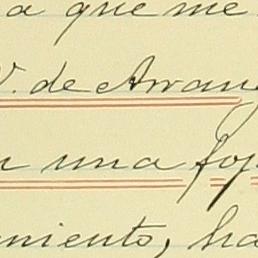 a que me
V. de Arrang
una fop
miento, ha